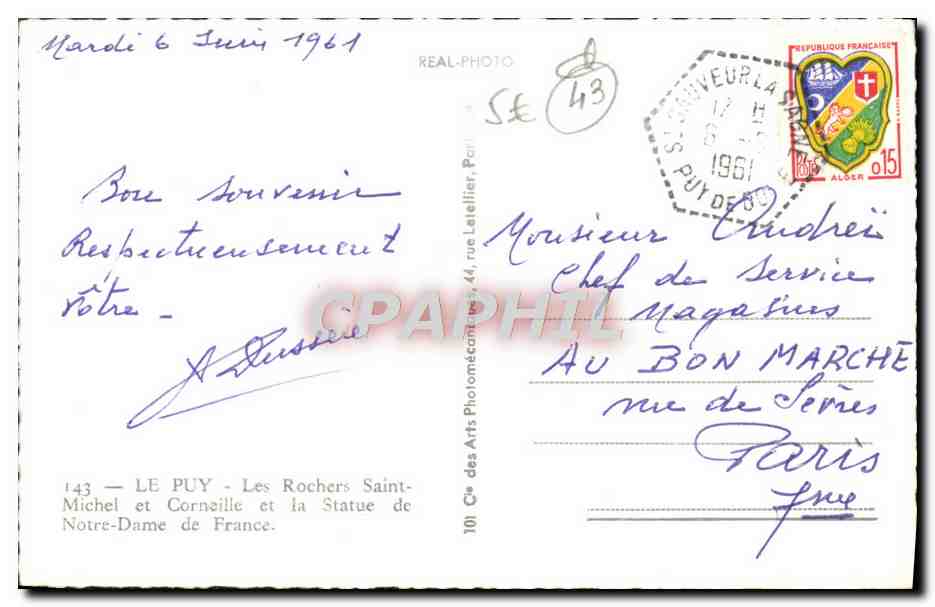 Mardi 6 Juin 1961
REAL-PHOTO
5€
43
Bon souvenir
Respectueusement
Vôtre -
143 — LE PUY - Les Rochers Saint-
Michel et Corneille et la Statue de
Notre-Dame de France.
101 Cie des Arts Photomécaniques, 44, rue Letellier, Pari
CPAPHIL
ST SAUVEUR LA SAGNE
PUY DE DO
17 H
6 -
1961
REPUBLIQUE FRANÇAISE
POSTES
ALGER
0,15
Monsieur Andreï
Chef de Service
Magasins
AU BON MARCHE
rue de Sèvres
Paris
7me